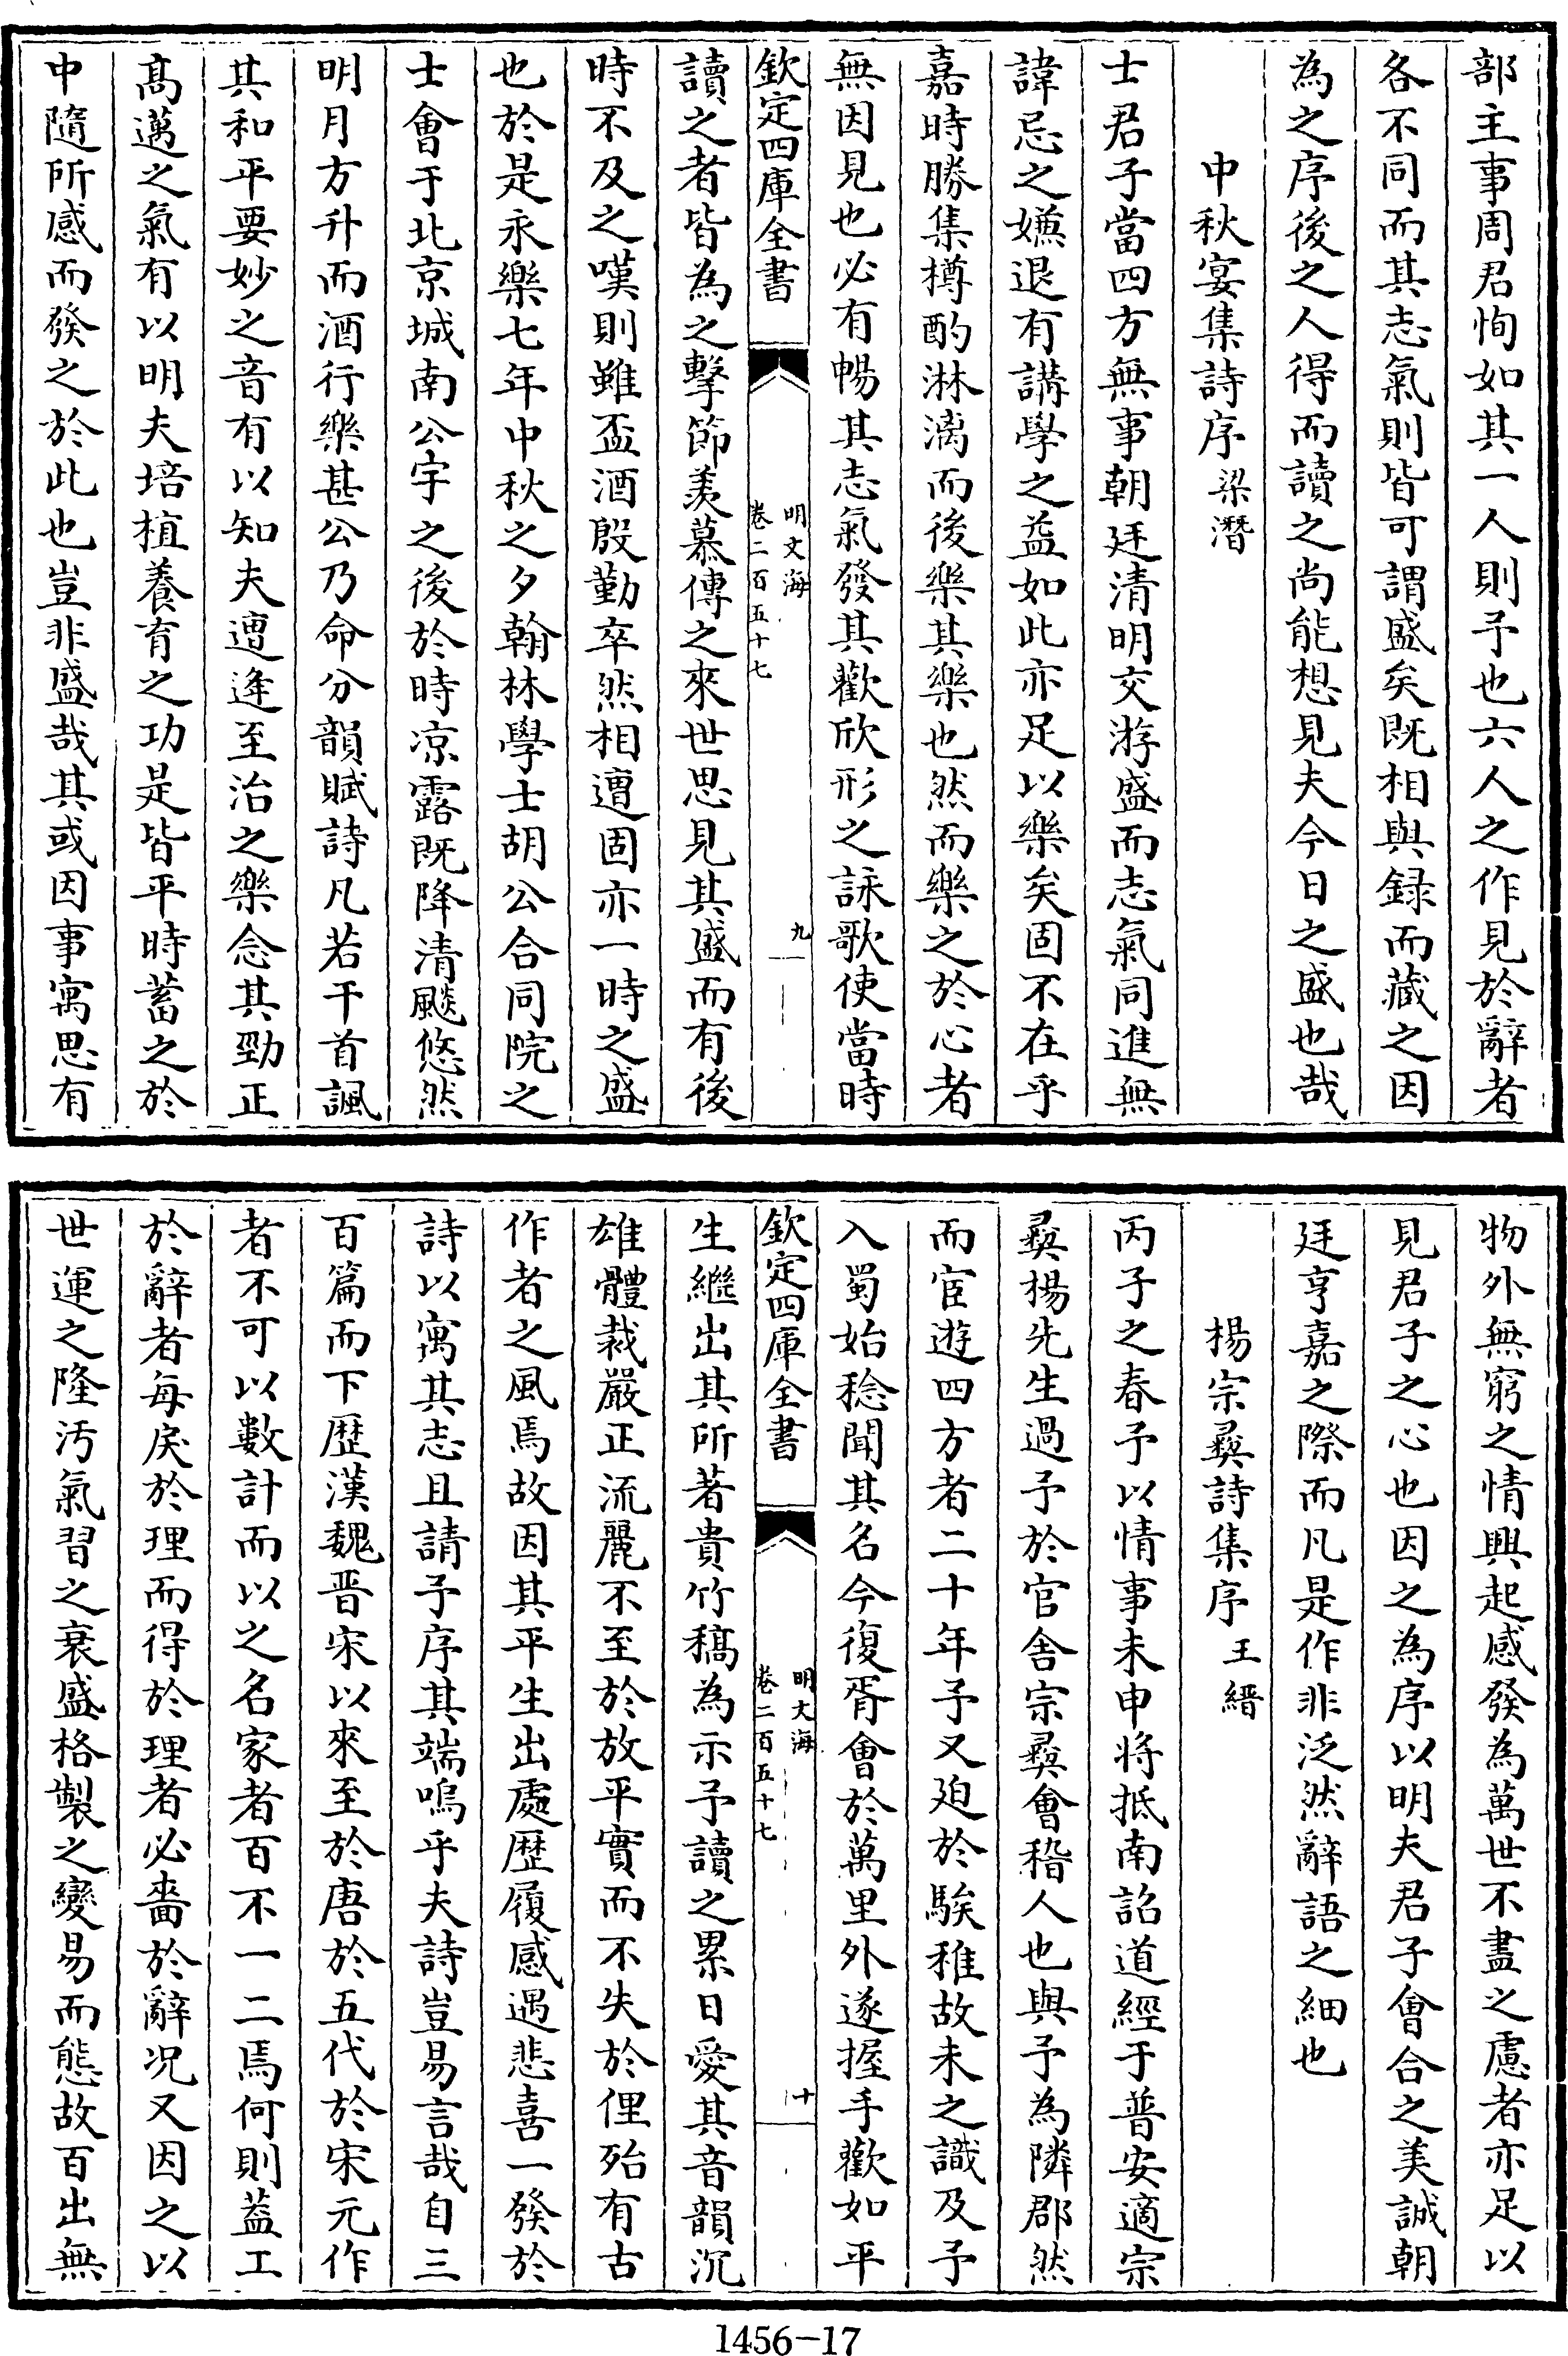 部主事周君恂如其一人則予也六人之作見於辭者
各不同而其志氣則皆可謂盛矣既相與録而藏之因
為之序後之人得而讀之尚能想見夫今日之盛也哉
中秋宴集詩序 梁潛
士君子當四方無事朝廷清明交游盛而志氣同進無
諱忌之嫌退有講學之益如此亦足以樂矣固不在乎
嘉時勝集樽酌淋漓而後樂其樂也然而樂之於心者
無因見也必有暢其志氣發其歡欣形之詠歌使當時
欽定四庫全書
明文海
卷二百五十七
九
讀之者皆為之擊節羨慕傳之來世思見其盛而有後
時不及之嘆則雖盃酒殷勤卒然相遭固亦一時之盛
也於是永樂七年中秋之夕翰林學士胡公合同院之
士會于北京城南公宇之後於時凉露既降清飈悠然
明月方升而酒行樂甚公乃命分韻賦詩凡若干首諷
其和平要妙之音有以知夫遭逢至治之樂念其勁正
髙邁之氣有以明夫培植養育之功是皆平時蓄之於
中隨所感而發之於此也豈非盛哉其或因事寓思有
物外無窮之情興起感發為萬世不盡之慮者亦足以
見君子之心也因之為序以明夫君子會合之美誠朝
廷亨嘉之際而凡是作非泛然辭語之細也
楊宗彛詩集序 王縉
丙子之春予以情事未申将抵南詔道經于普安適宗
彛楊先生過予於官舍宗彛會稽人也與予為隣郡然
而宦遊四方者二十年予又廹於騃稚故未之識及予
入蜀始稔聞其名今復胥會於萬里外遂握手歡如平
欽定四庫全書
明文海
卷二百五十七
十
生繼出其所著貴竹稿為示予讀之累日愛其音韻沉
雄體裁嚴正流麗不至於放平實而不失於俚殆有古
作者之風焉故因其平生出處歴履感遇悲喜一發於
詩以寓其志且請予序其端嗚乎夫詩豈易言哉自三
百篇而下歴漢魏晋宋以來至於唐於五代於宋元作
者不可以數計而以之名家者百不一二焉何則蓋工
於辭者每戾於理而得於理者必嗇於辭况又因之以
世運之隆汚氣習之衰盛格製之變易而態故百出無
1456-17